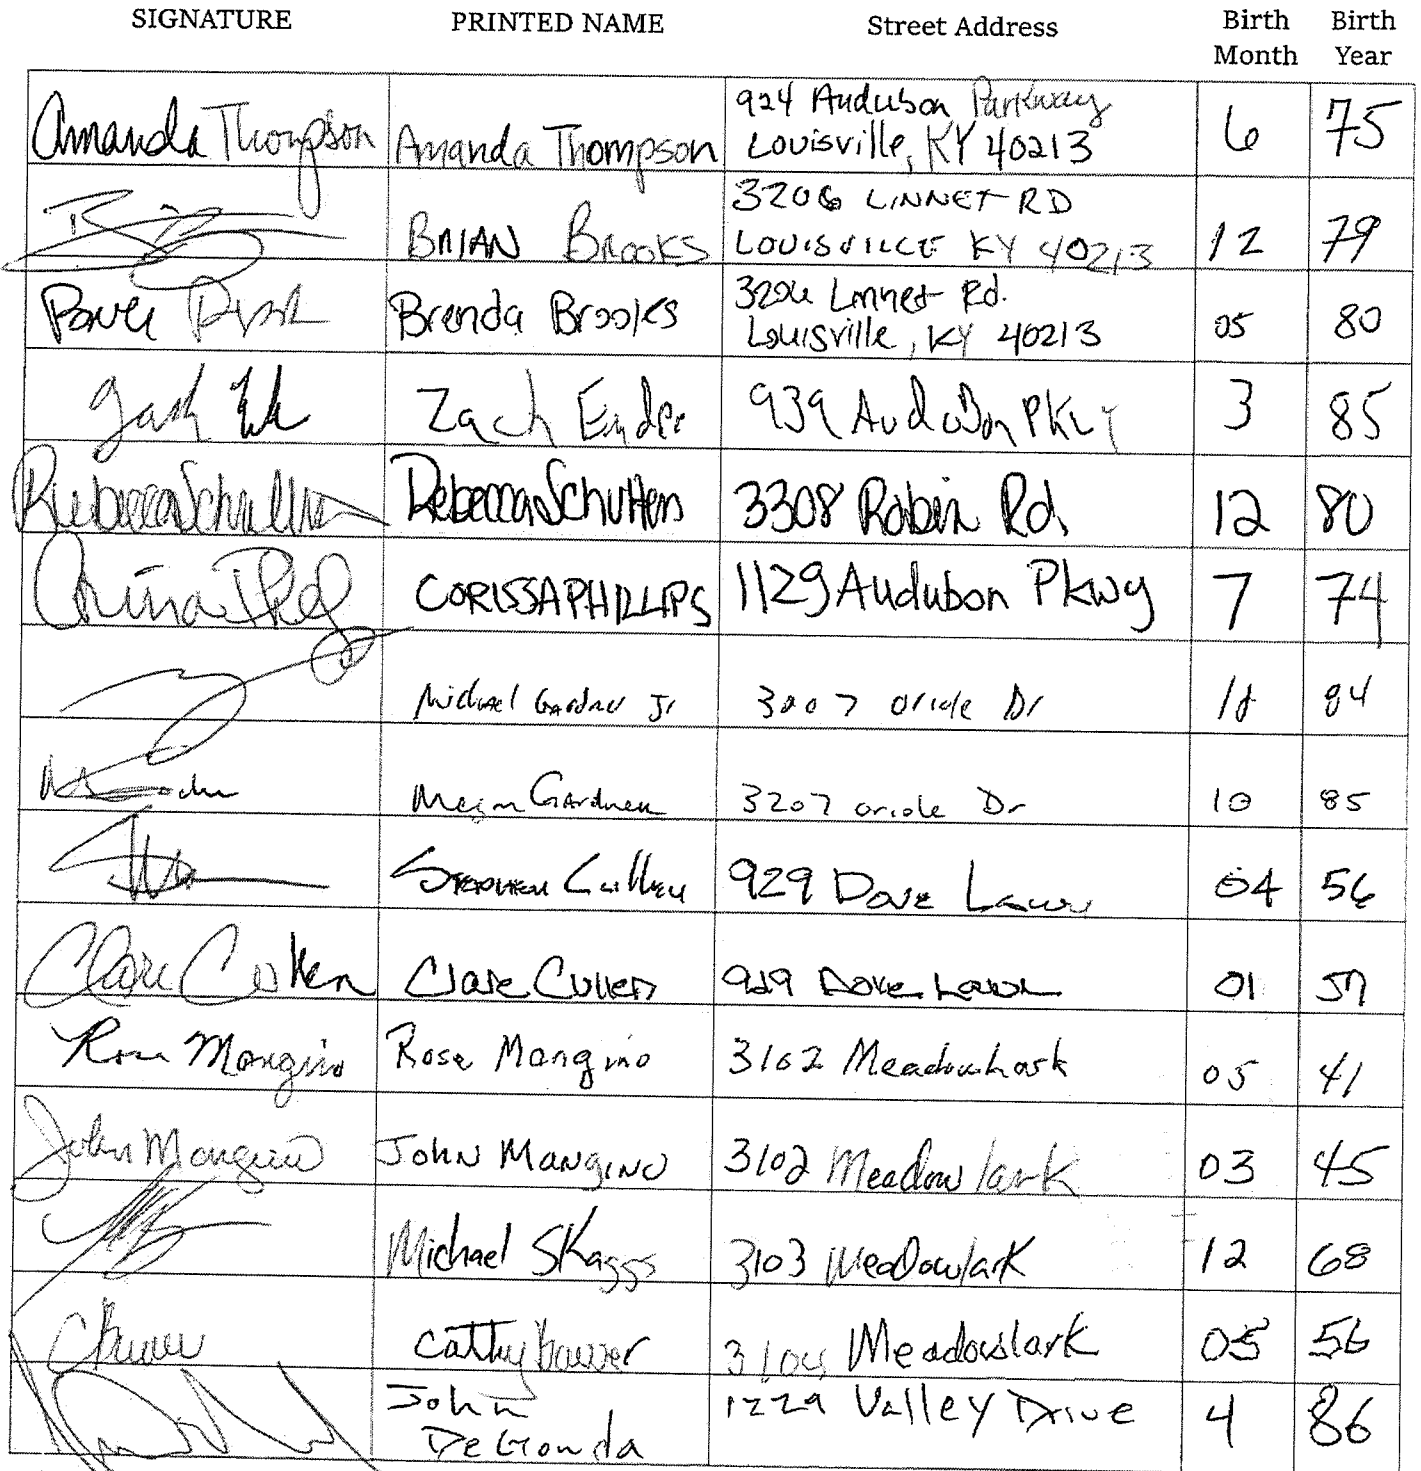 SIGNATURE PRINTED NAME Street Address Birth Month Birth Year
Amanda Thompson Amanda Thompson 924 Audubon Parkway
Louisville, KY 40213 6 75
BRIAN BROOKS 3206 LINNET RD
LOUISVILLE KY 40213 12 79
Brenda Brooks 3206 Linnet Rd.
Louisville, KY 40213 05 80
Zach Ender 939 Audubon Pkwy 3 85
Rebecca Schutters Rebecca Schutters 3308 Robin Rd. 12 80
CORISSA PHILLIPS 1129 Audubon Pkwy 7 74
Michael Gardner Jr Oriole Dr 84
Megan Gardner 3207 oriole Dr 10 85
Stephen Cullen 929 Dove Lawn 04 56
Clare Cullen Clare Cullen 929 Dove Lawn 01 57
Rose Mangino Rose Mangino 3102 Meadowlark 05 41
John Mangino John Mangino 3102 Meadowlark 03 45
Michael Skaggs 3103 Meadowlark 12 68
Cathy Meadowlark 05 56
John
DeGonda 1229 Valley Drive 4 86